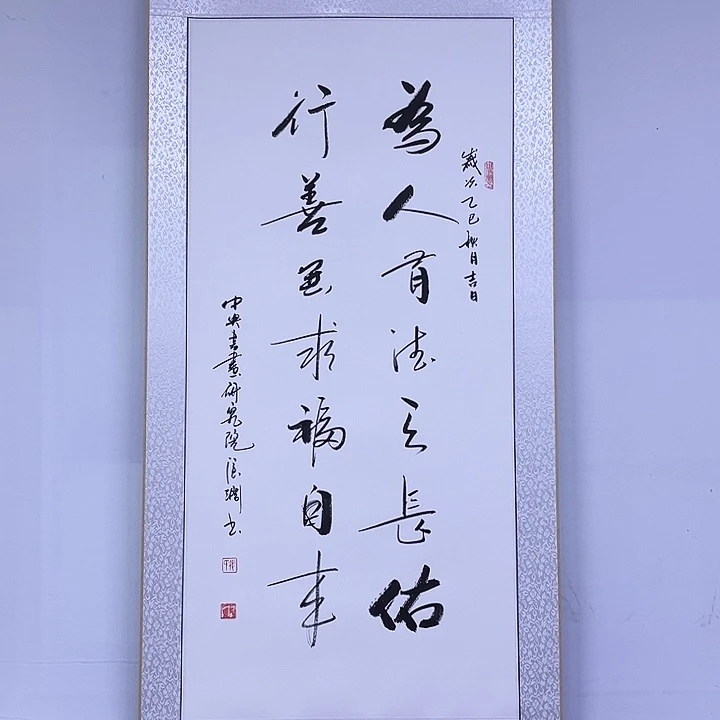 歲次乙巳秋月吉日
為人有德天長佑
行善無求福自来
中央书畫研究院張书